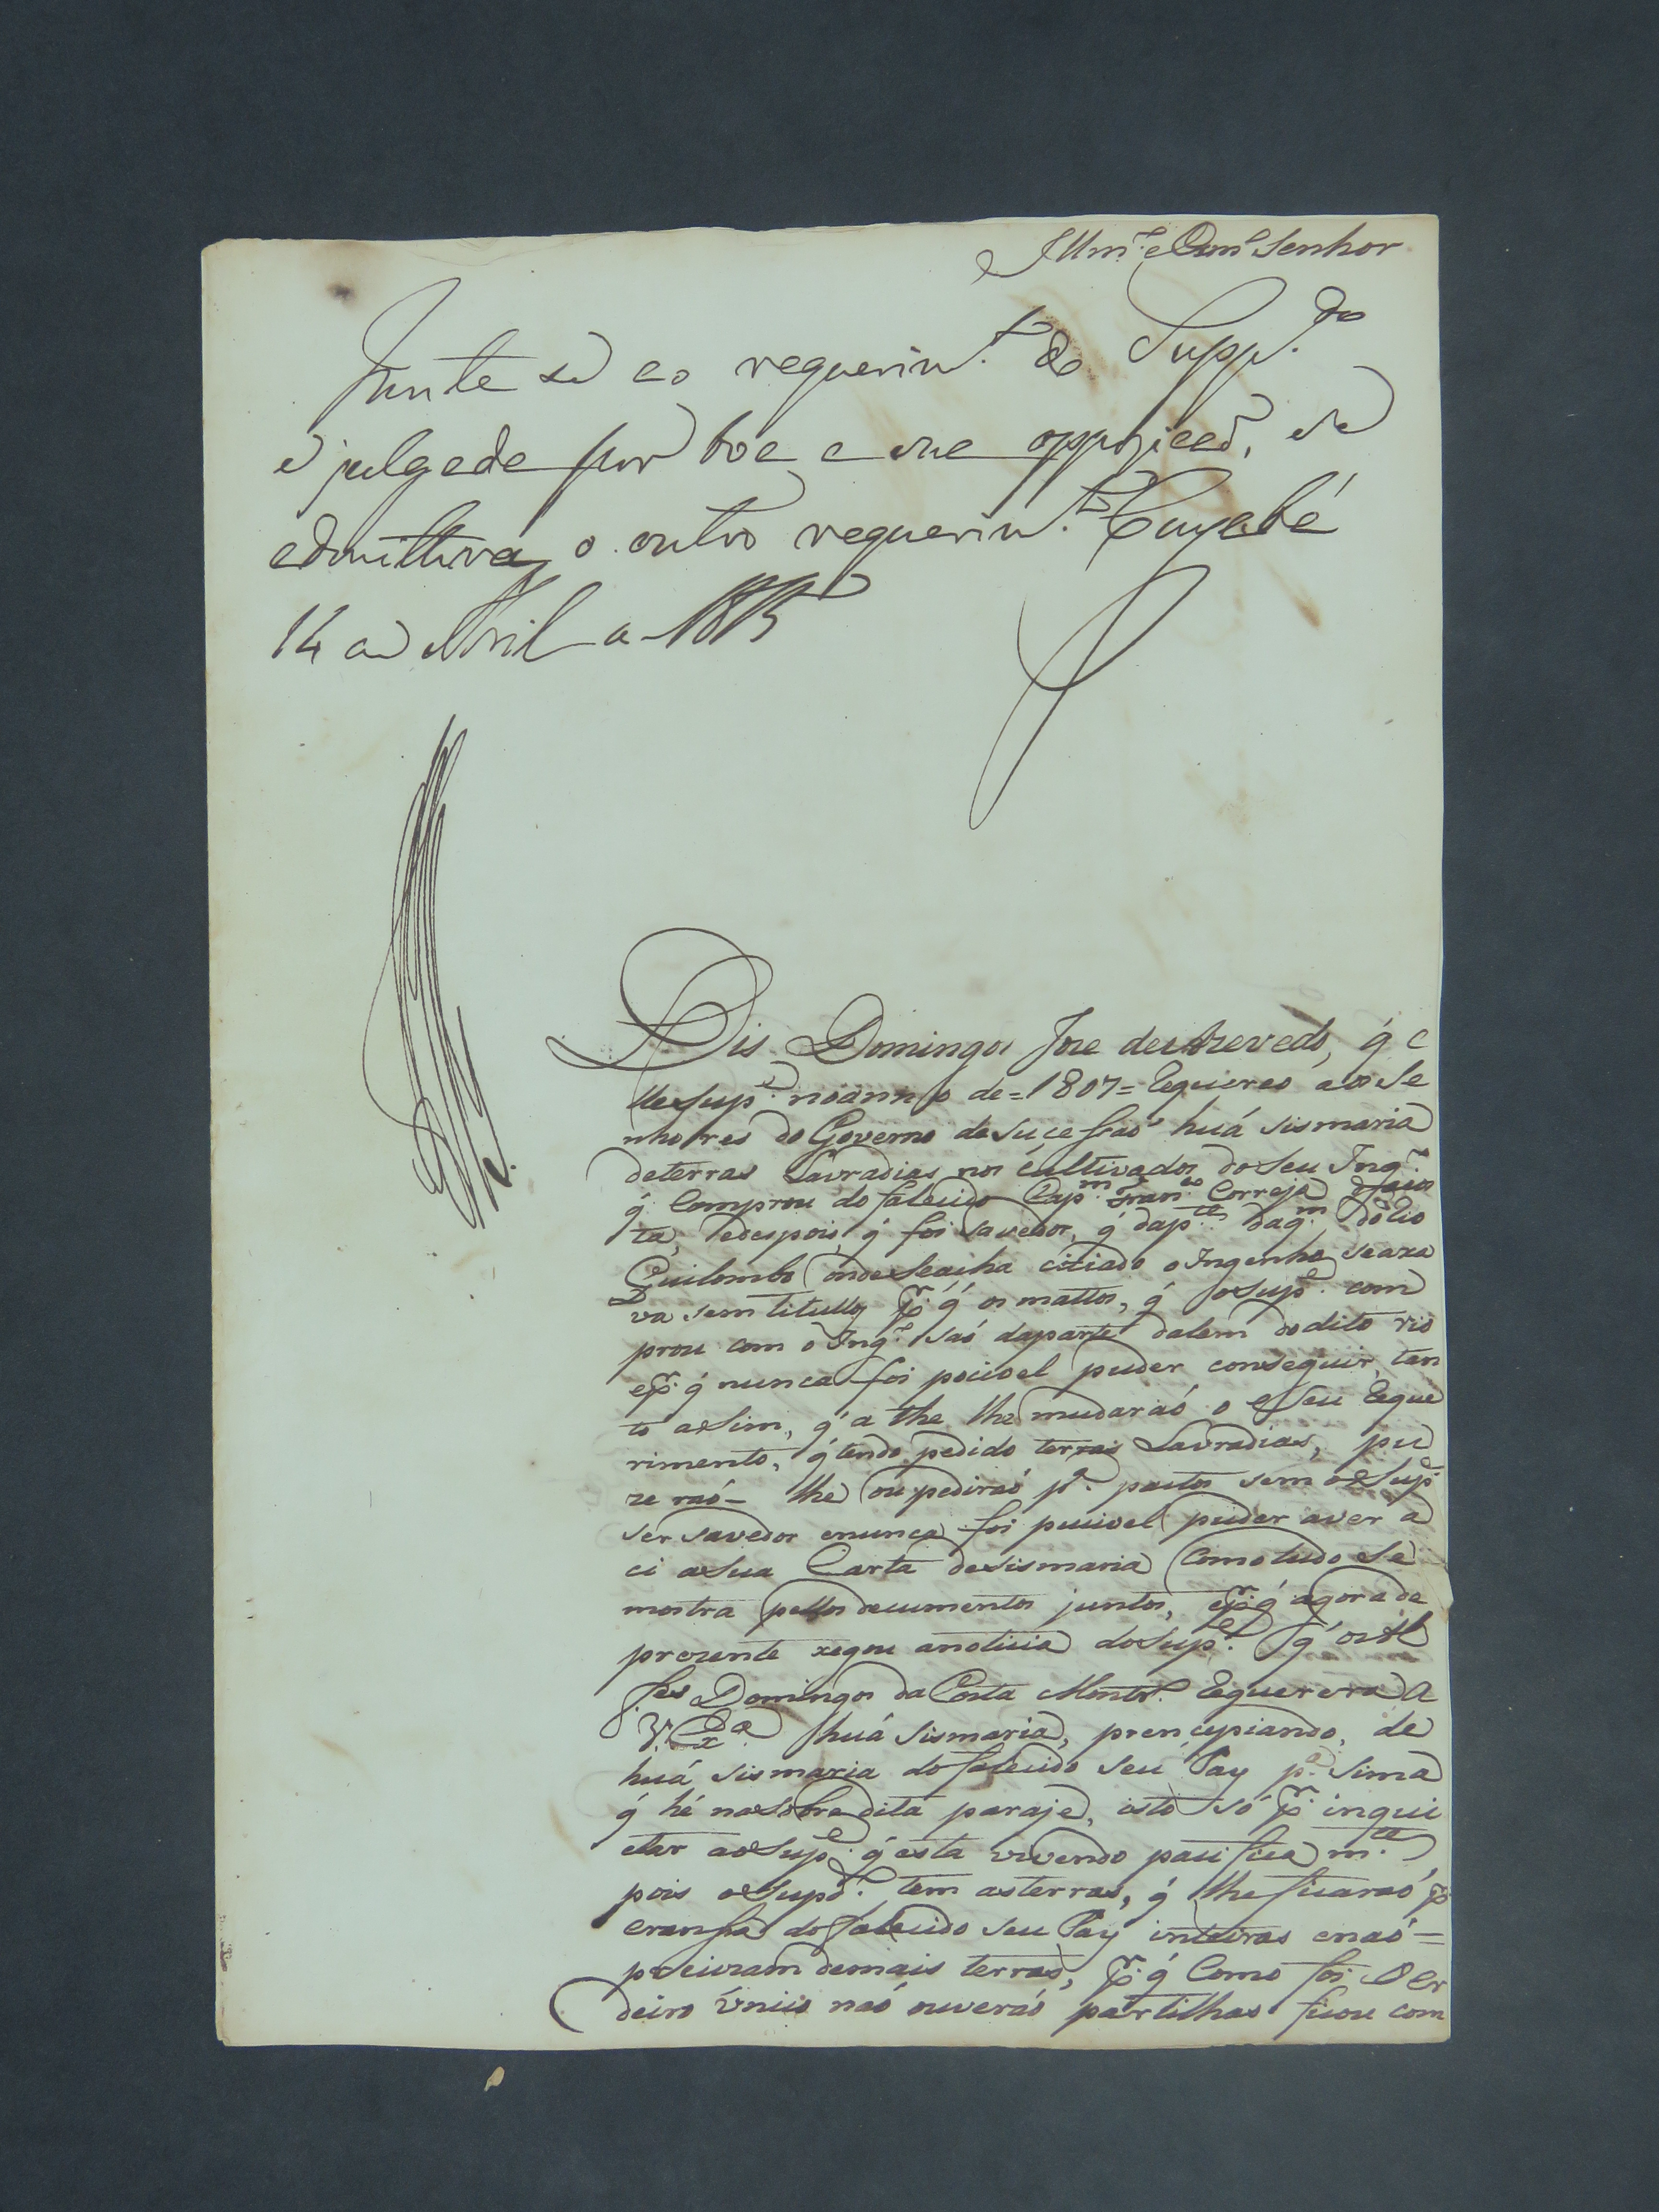 Illm.º e Exmº Senhor
Junte se ao requerim.to do Supp.do
e julgada por boa a sua oppozicaõ, se
admittirá o outro requerim.to Cuyabá
14 de Abril de 1815
Dis Domingos Joze de Azevedo, q̃ e
lle Sup.e no anno de = 1807 = Requereo aos Se
nhores do Governo da Sucessaõ huá sismaria
de terras Lavradias nos cultivados do seu Ing.º
q̃ Comprou do falecido Cap.m Fran.co Correja da Cos
ta, e despois q̃ foi Savedor, q̃ da p.te daq.m do Rio
Quilombo onde se acha citiado o Ingenho se axa
va sem titullos p.r q̃ os mattos, q̃ o Sup.e com
prou com o Ing.º saó da parte dalem do dito rio
e p.r q̃ nunca foi pocivel puder conseguir, tan
to asim, q̃ a the lhe mudaraó o seu Reque
rimento, q̃ tendo pedido terras Lavradias, pu
zeraó - lhe ou pediraó p.ª pastos sem o Sup.e
ser savedor e nunca foi pucivel puder aver a
ci a sua Carta de sismaria Como tudo se
mostra pellos decumentos juntos, e p.r q̃ agora de
prezente xegou a noticia do Sup.e q̃ o Al
feres Domingos da Costa Montr.º Requerera a
V. Ex.ª huá sismaria, prencipiando, de
huá sismaria do falecido seu Pay p.ª sima
q̃ hé na sobredita paraje, isto só p.r inqui
etar ao Sup.e q̃ esta vivendo pacifica m.te
pois o Supd.º tem as terras, q̃ lhe ficaraó p.r
eransa do falecido seu Pay inteiras e naó =
preciza demais terras, p.r q̃ Como foi Oer
deiro únicó naó ouveraó partilhas ficou com